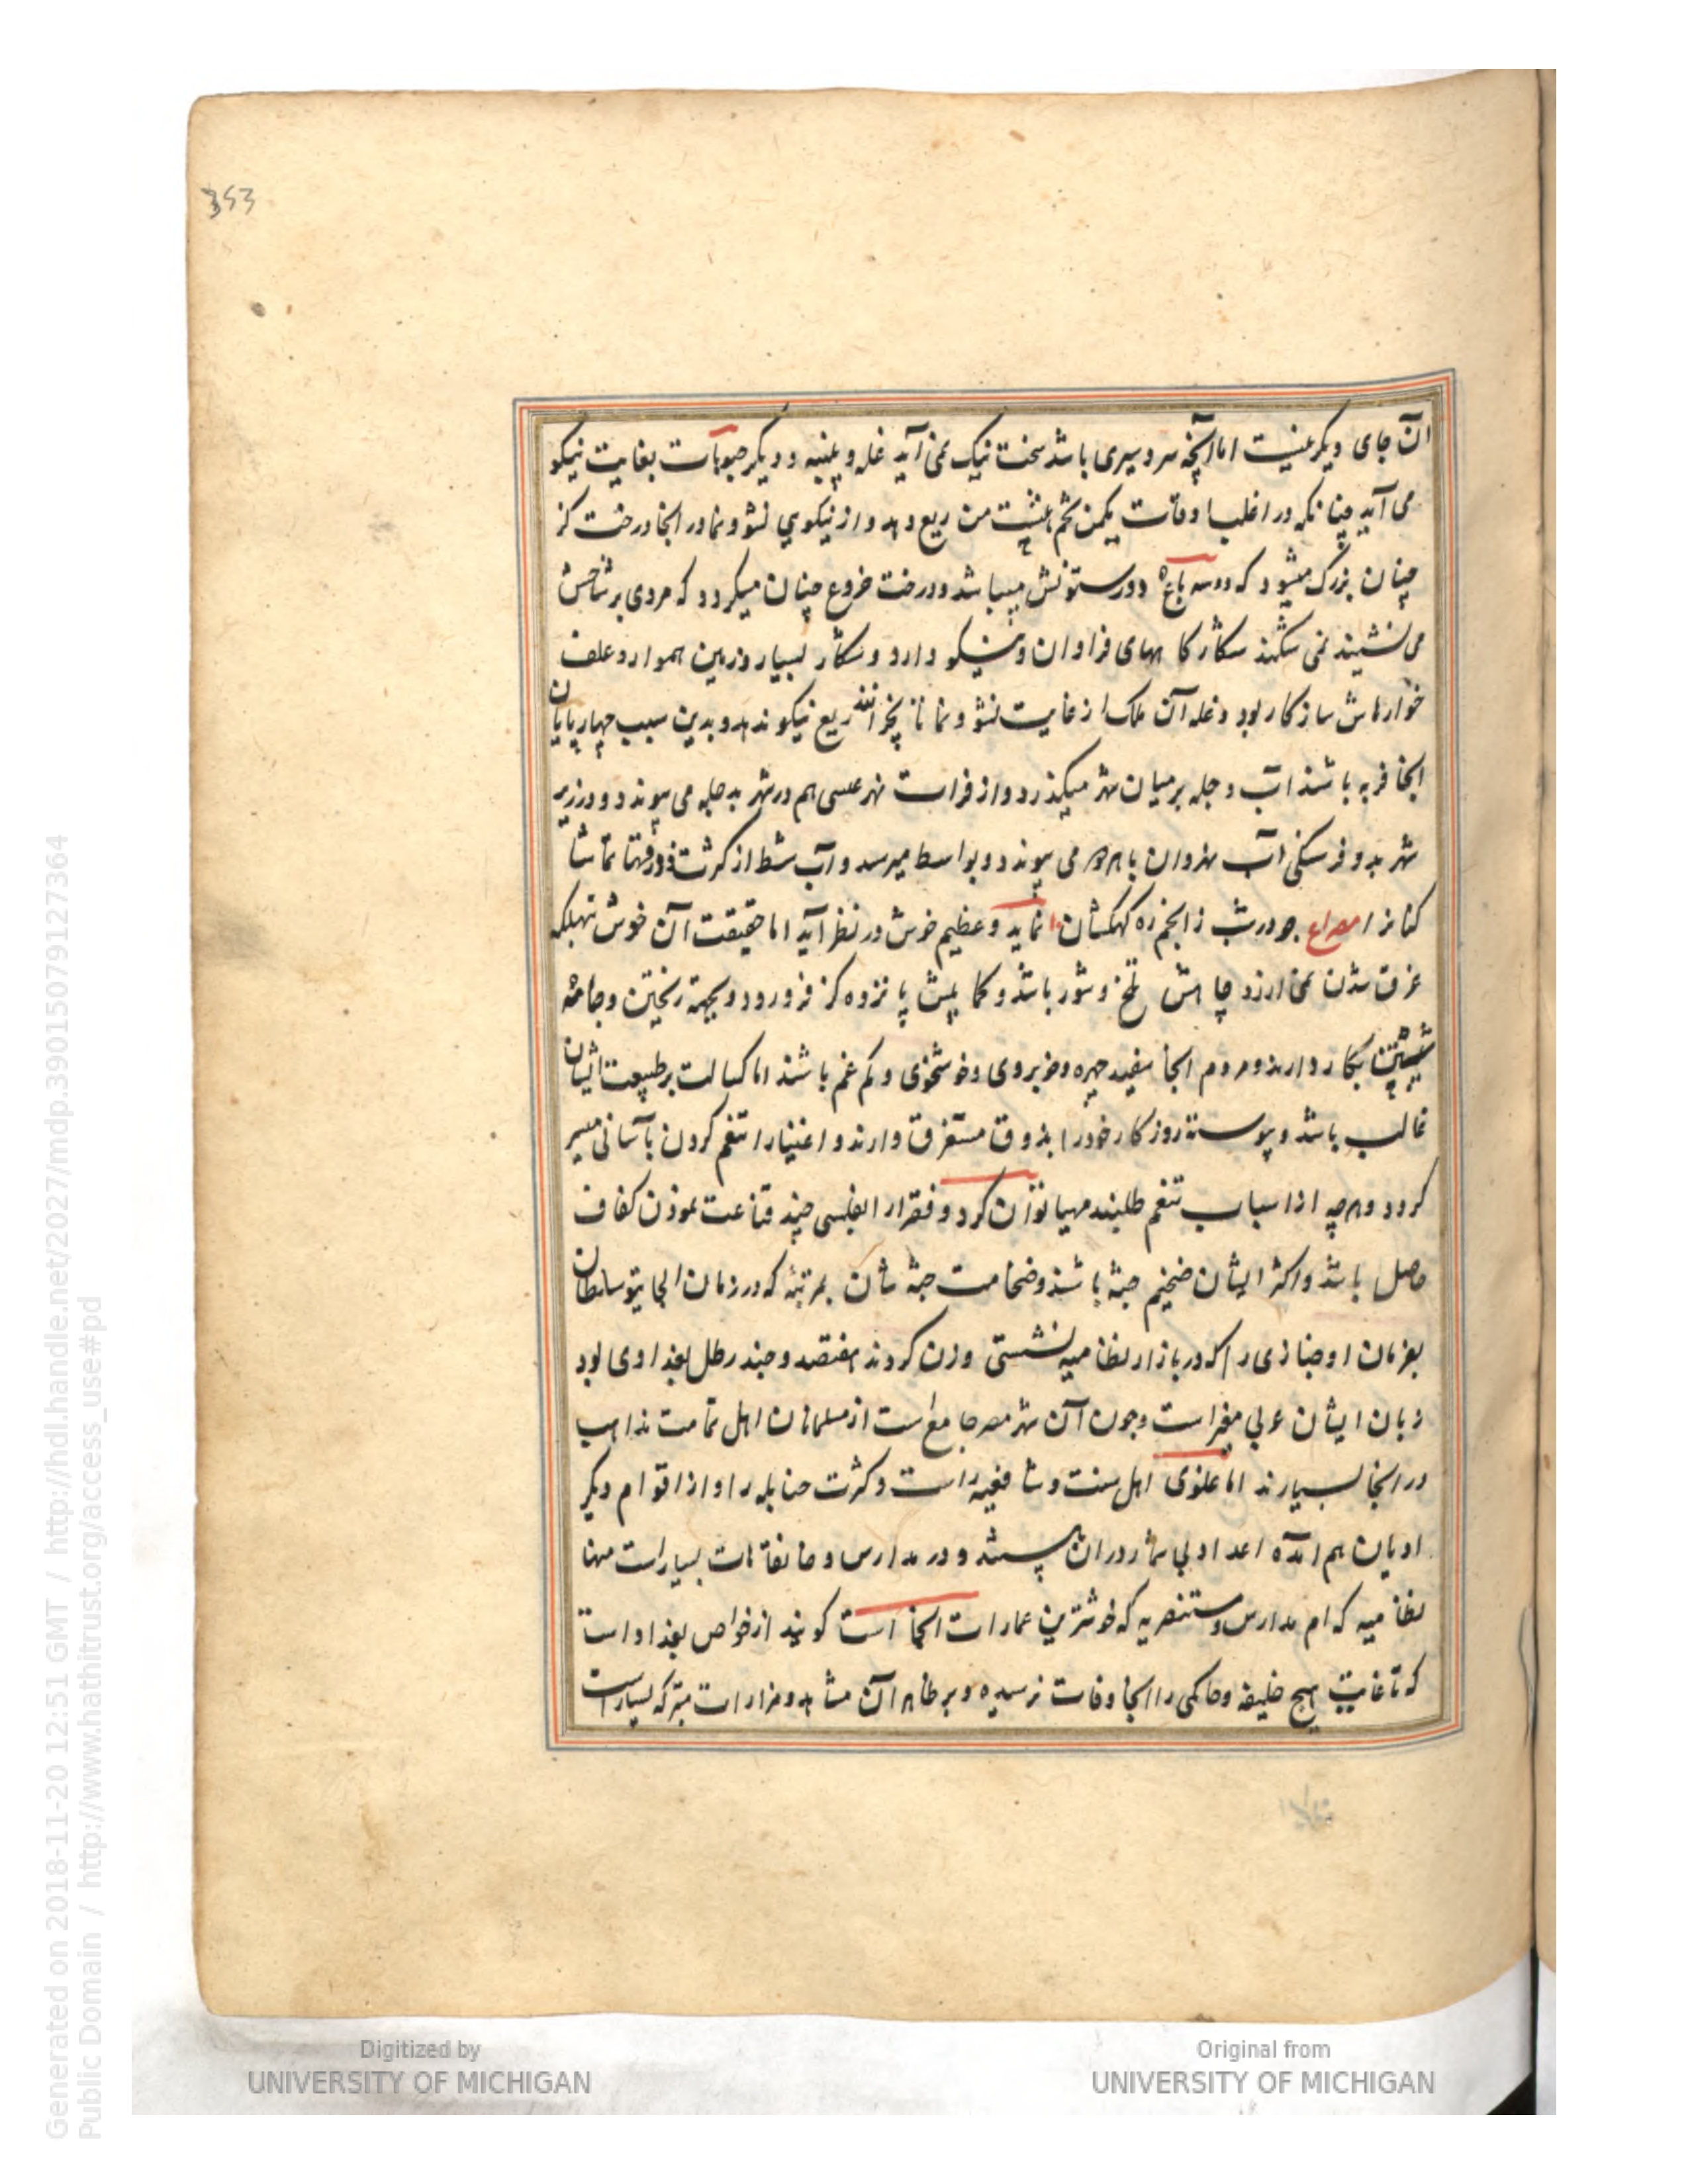 353
آن جای دیگر نیست اما آنچه سردسیری باشد سخت نیک نمی آید غله و پنبه و دیگر حبوبات بغایت نیکو
می آید چنانکه در اغلب اوقات یکمن تخم بیست من ریع دهد و از نیکویی نشو و نما در انجا درخت کز
چنان بزرگ میشود که دوسه باع دورستونش میباشد و درخت خروع چنان میگردد که مردی بر شاخش
می نشیند نمی شکند شکارکا ههای فراوان و نیکو دارد و شکار بسیار و زمین هموار و علف
خوارهاش سازکار بود و غله آن ملک از غایت نشو و نما تا نچرانند ریع نیکو ندهد و بدین سبب چهارپایان
انجا فربه باشند آب دجله بر میان شهر میکذرد و از فرات نهر عیسی هم در شهر بدجله می پیوندد و در زیر
شهر بدو فرسنکی آب نهروان با هردو می پیوندد و بواسط میرسد و آب شط از کثرت در وقتها تماشا
کنانرا مصراع جو در شب ز انجم ره کهکشان نماید و عظیم خوش در نظر آید اما حقیقت آن خوش بتهلکه
غرق شدن نمی ارزد چاهاش تلخ و شور باشد و کما بیش پانزده کز فرو رود و بجهة ریختن و جامه
شستن بکار دارند و مردم انجا سفید چهره و خوبروی و خوشخوی و کم غم باشند اما کسالت بر طبیعت ایشان
غالب باشد و پیوسته روزکار خود را بذوق مستغرق دارند و اغنیا را تنعم کردن بآسانی میسر
کردد و هرچه از اسباب تنعم طلبند مهیا توان کرد و فقرا را بفلسی چند قناعت نمودن کفاف
حاصل باشد و اکثر ایشان ضخیم جثه باشند و ضخامت جثه شان بمرتبه که در زمان الجایتو سلطان
بفرمان او خبازی را که در بازار نظامیه نشستی وزن کردند هفتصد و چند رطل بغدادی بود
زبان ایشان عربی مغیر است و چون آن شهر مصر جامع است از مسلمانان اهل تمامت مذاهب
در انجا بسیارند اما غلوی اهل سنت و شافعیه راست و کثرت حنابله را و از اقوام دیگر
ادیان هم آمده اعداد بی شمار در آن هستند و در مدارس و خانقاهات بسیار است منها
نظامیه که ام مدارس و مستنصریه که خوشترین عمارات انجا است کویند از خواص بغداد است
که تا غایت هیچ خلیفه و حاکمی را انجا وفات نرسیده و بر ظاهر آن مشاهد و مزارات متبرکه بسیار است
Generated on 2018-11-20 12:51 GMT / http://hdl.handle.net/2027/mdp.39015079127364
Public Domain / http://www.hathitrust.org/access_use#pd
Digitized by
UNIVERSITY OF MICHIGAN
Original from
UNIVERSITY OF MICHIGAN